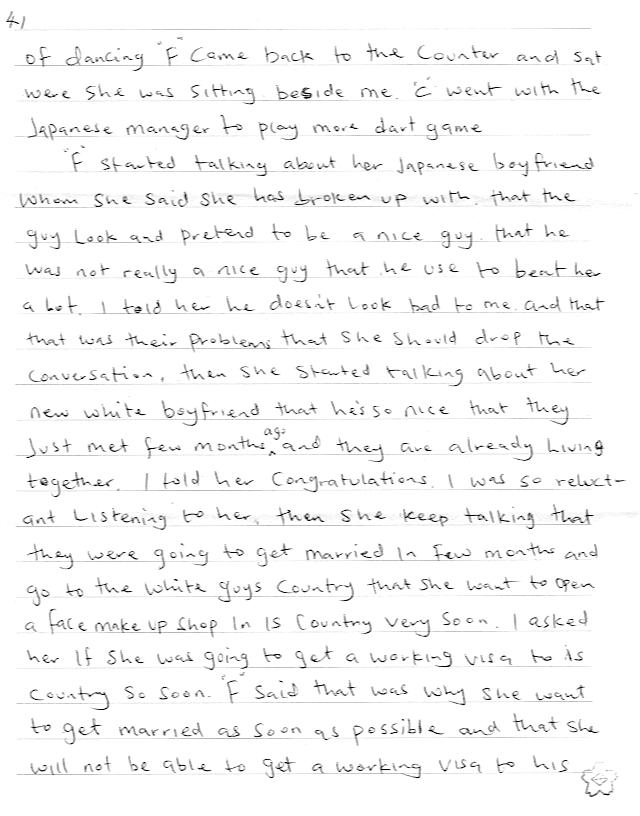 41
of dancing "F" Came back to the Counter and sat
were she was sitting beside me. "C" went with the
Japanese manager to play more dart game
"F" started talking about her Japanese boyfriend
whom she said she has broken up with. that the
guy Look and pretend to be a nice guy. that he
was not really a nice guy that he use to beat her
a lot. I told her he doesn't look bad to me. and that
that was their problems that she should drop the
Conversation, then she started talking about her
new white boyfriend that he's so nice that they
Just met few months ago and they are already Living
together. I told her Congratulations. I was so reluct-
ant Listening to her, then she keep talking that
they were going to get married In few months and
go to the white guys Country that she want to open
a face make up shop In Is Country very Soon. I asked
her If she was going to get a working visa to is
Country So Soon. "F" Said that was why she want
to get married as soon as possible and that she
will not be able to get a working visa to his